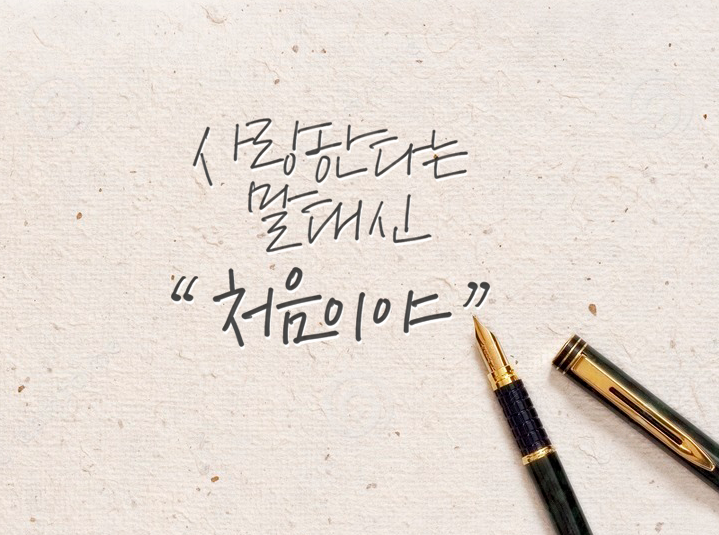 사랑한다는
말 대신
“처음이야”